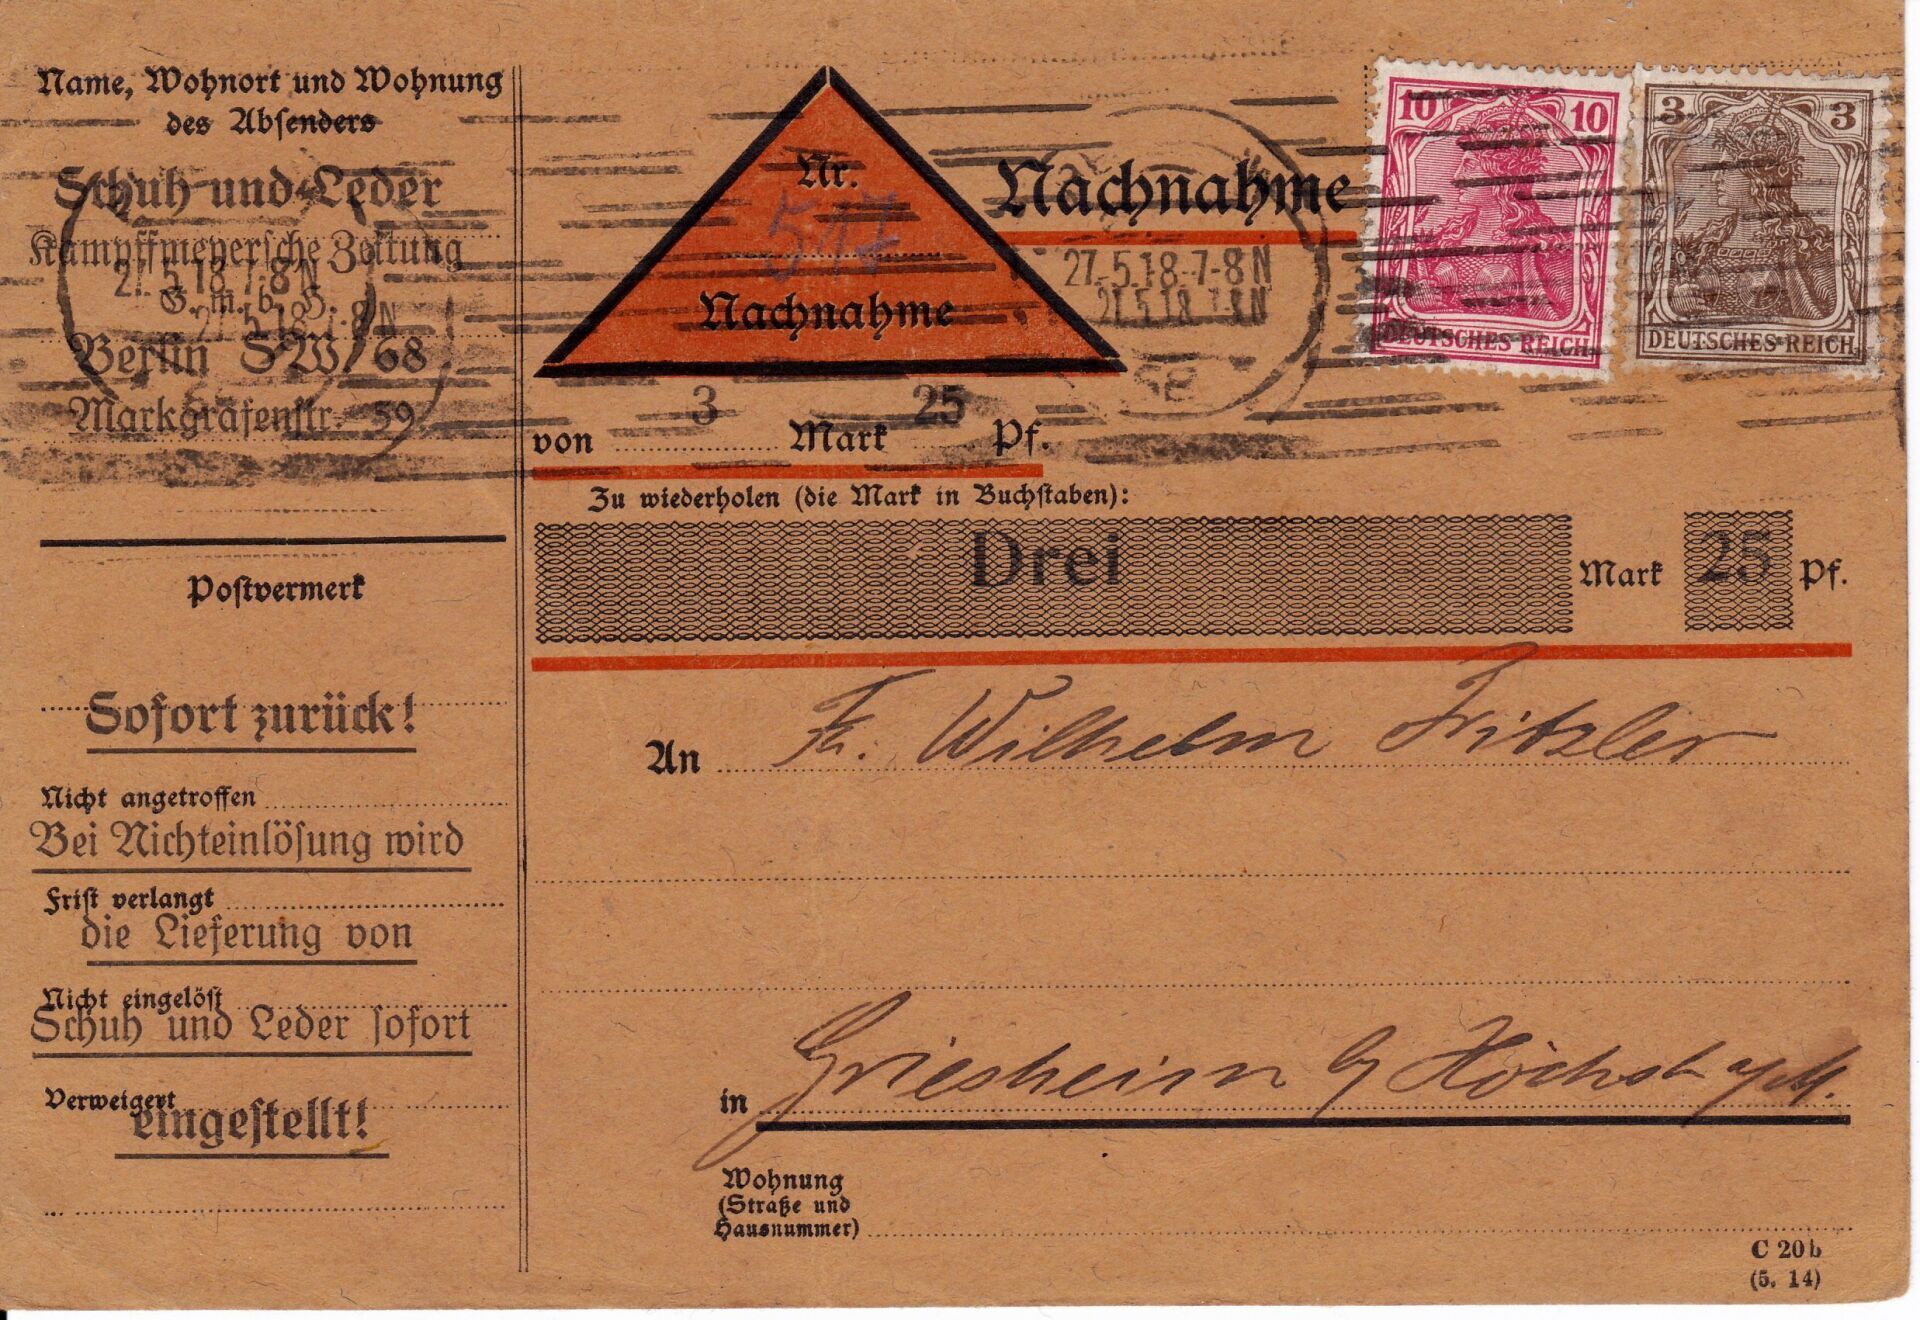 Name, Wohnort und Wohnung
des Absenders
Schuh und Leder
Kampffmeyersche Zeitung
G. m. b. H.
Berlin SW 68
Markgrafenstr. 59
27.5.18.7-8N
27.5.18.7-8N
Postvermerk
Sofort zurück!
Nicht angetroffen
Bei Nichteinlösung wird
Frist verlangt
die Lieferung von
Nicht eingelöst
Schuh und Leder sofort
Verweigert
eingestellt!
Nr.
517
Nachnahme
Nachnahme
27.5.18.7-8N
27.5.18.7-8N
10 10
DEUTSCHES REICH
3 3
DEUTSCHES REICH
von 3 Mark 25 Pf.
Zu wiederholen (die Mark in Buchstaben):
Drei Mark 25 Pf.
An Fr. Wilhelm Fritzler
in Griesheim b/ Höchst a/M.
Wohnung
(Straße und
Hausnummer)
C 20b
(5. 14)